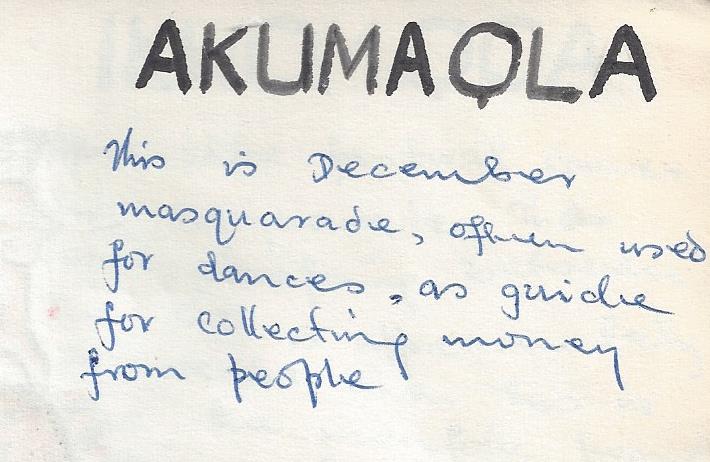 AKUMAOLA
This is December
masquarade, often used
for dances, as guide
for collecting money
from people